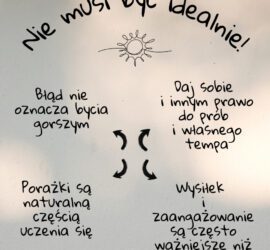 Nie musi być idealnie!
Błąd nie
oznacza bycia
gorszym
Daj sobie
i innym prawo
do prób
i własnego
tempa
Porażki są
naturalną
częścią
uczenia się
Wysiłek
i
zaangażowanie
są często
ważniejsze niż